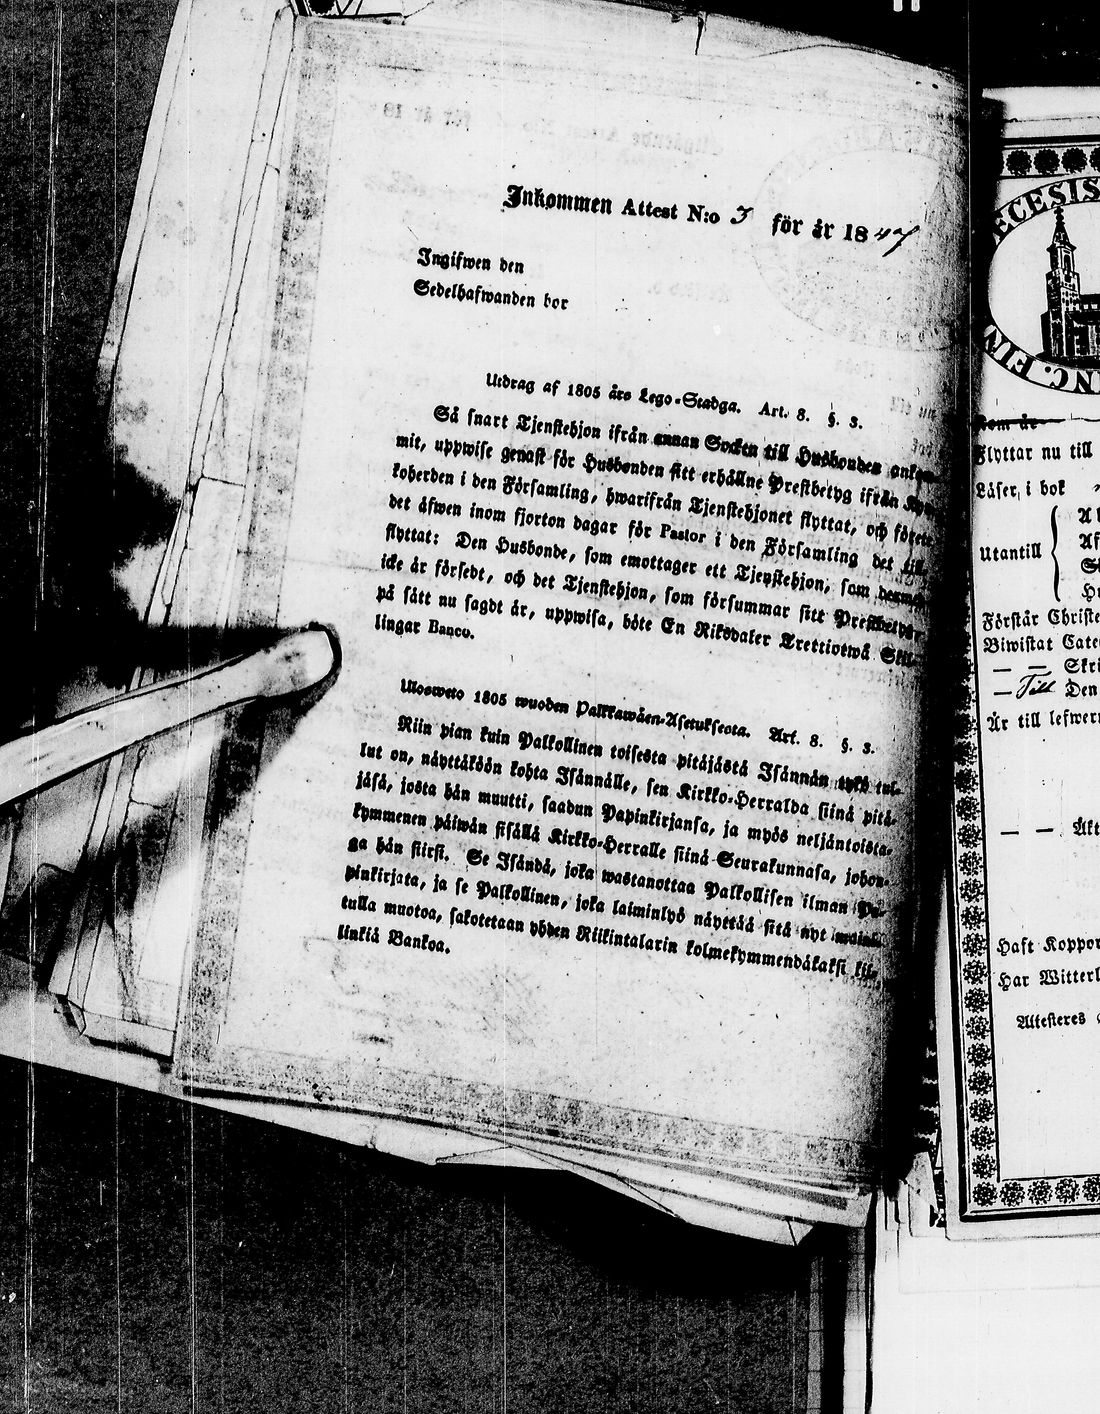 Inkommen Attest N:o 3 för år 1847
Ingifwen den
Sedelhafwanden bor
Utdrag af 1805 års Lego-Stadga. Art. 8. §. 3.
Så snart Tjenstehjon ifrån annan Sockn till Husbonden
mit, uppwise genast för Husbonden sitt erhållne Prestbetyg ifrån
koherden i den Församling, hwarifrån Tjenstehjonet flyttat, och förete
det äfwen inom fjorton dagar för Pastor i den Församling det till
flyttat: Den Husbonde, som emottager ett Tjenstehjon, som dermed
icke är försedt, och det Tjenstehjon, som försummar sitt Prestbetyg,
på sätt nu sagdt är, uppwisa, böte En Riksdaler Trettiotwå Skil-
lingar Banco.
Ulosweto 1805 wuoden Palkkawäen-Asetuksesta. Art. 8. §. 3.
Niin pian kuin Palkollinen toisesta pitäjästä Isännän tykö tul-
lut on, näyttäköön kohta Isännälle, sen Kirkko-Herralda siinä pitä-
jäsä, josta hän muutti, saadun Papinkirjansa, ja myös neljäntoista-
kymmenen päiwän sisällä Kirkko-Herralle siinä Seurakunnasa, johon-
ga hän siirsi. Se Isändä, joka wastanottaa Palkollisen ilman Pa-
pinkirjata, ja se Palkollinen, joka laiminlyö näyttää sitä nyt
tulla muotoa, sakotetaan yhden Riikintalarin kolmekymmendäkaksi kil-
linkiä Bankoa.
ECESIS
NC. FIN
Flyttar nu till
Läser, i bok
Utantill
Förstår Christe
Biwistat Cate
— — Skri
— Till Den
Är till lefwern
— — Äkt
Haft Koppor
Har Witterl
Attesteres